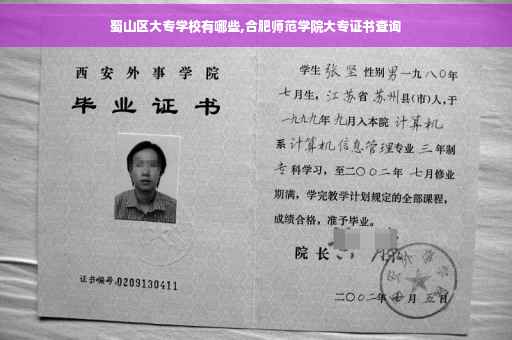 蜀山区大专学校有哪些,合肥师范学院大专证书查询
西安外事学院
毕业证书
证书编号:0209130411
学生 张坚 性别 男 一九八〇年
七月生,江苏省 苏州 县(市)人,于
一九九九年 九月入本院 计算机
系 计算机信息管理专业 三 年制
专 科学习,至二〇〇二年 七月修业
期满,学完教学计划规定的全部课程,
成绩合格,准予毕业。
院长
二〇〇二年 月 五日